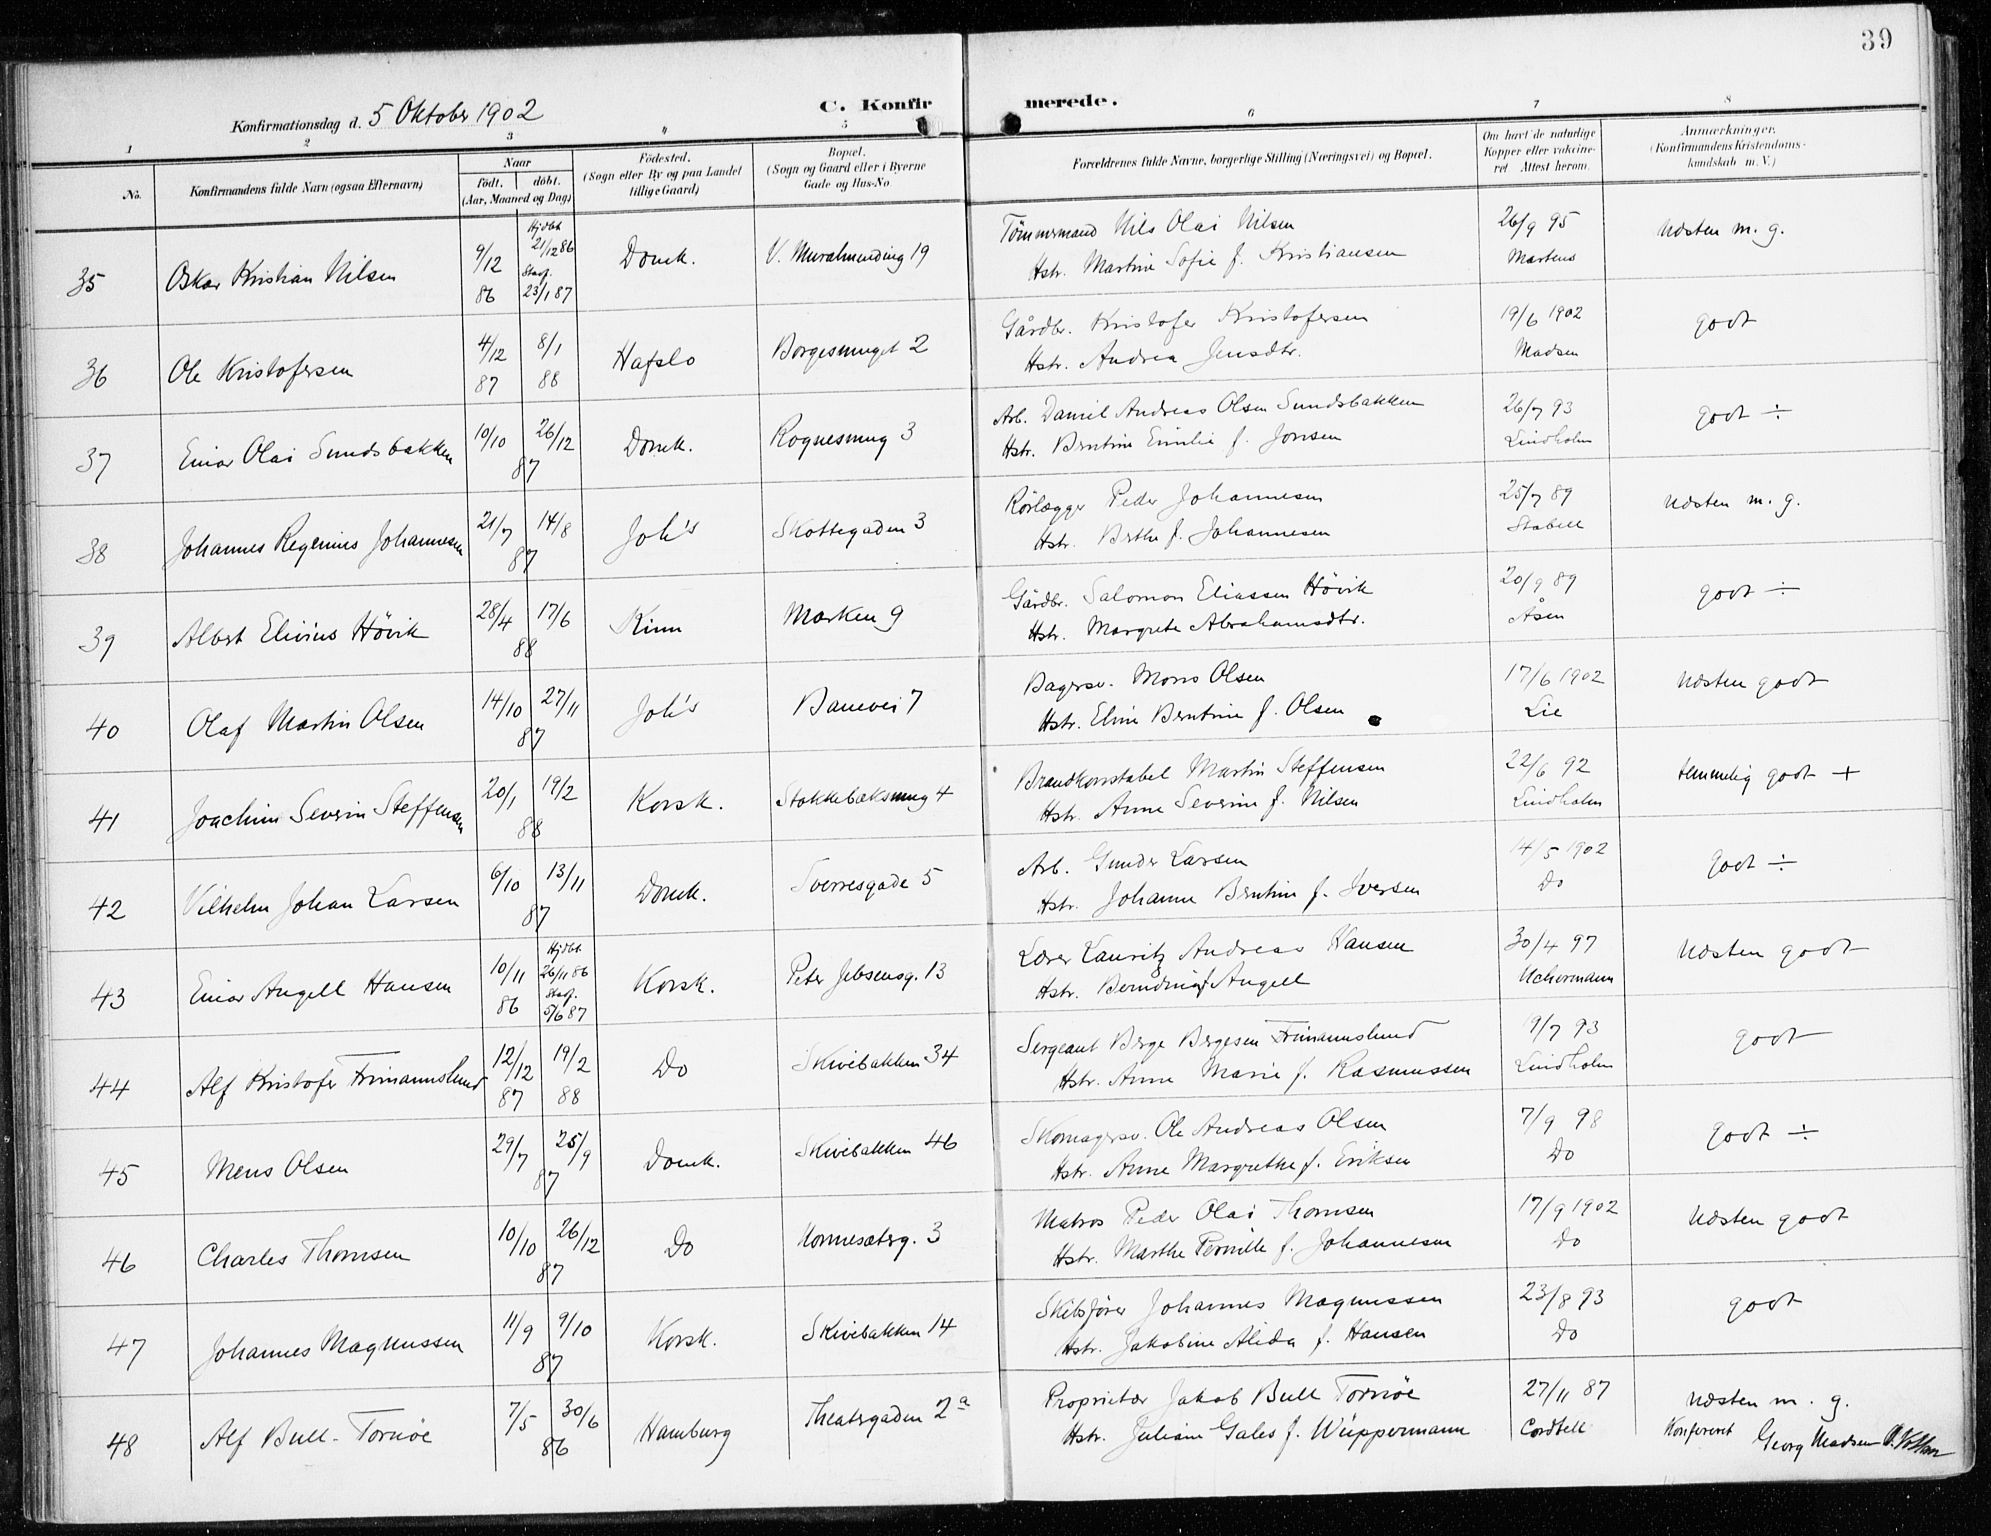 39
Konfirmationsdag d. 5 Oktober 1902
C. Konfir merede.
1 2 3 4 5 6 7 8
No. Konfirmandens fulde Navn (ogsaa Efternavn) Naar födt. döbt. (Aar, Maaned og Dag) Födested. (Sogn eller By og paa Landet tillige Gaard) Bopæl. (Sogn og Gaard eller i Byerne Gade og Hus-No Forældrenes fulde Navne, borgerlige Stilling (Næringsvei) og Bopæl. Om havt de naturlige Kopper eller vaccineret Attest herom. Anmærkninger. (Konfirmandens Kristendomskundskab m. V.)
35 Oskar Kristian Nilsen 9/12 86 Hjdbt 21/12 86 Stadf. 23/1 87 Domk. V. Muralmending 19 Tömmermand Nils Olai Nilsen
Hstr. Martine Sofie f. Kristiansen 26/9 95 Martens Næsten m. g.
36 Ole Kristofersen 4/12 87 8/1 88 Hafslo Borgesmuget 2 Gårdbr. Kristofer Kristofersen
Hstr. Andrea Jensdtr. 19/6 1902 Madsen godt
37 Einar Olai Sundsbakken 10/10 26/12 87 Domk. Rognesmug 3 Arb. Daniel Andreas Olsen Sundsbakken
Hstr. Berntine Emilie f. Jonsen 26/7 93 Lindholm godt ÷
38 Johannes Regenius Johannesen 21/7 14/8 87 Joh's Skottegaden 3 Rörlægger Peder Johannesen
Hstr. Berthe f. Johannesen 25/7 89 Stabell Næsten m. g.
39 Albert Elivius Hövik 28/4 17/6 88 Kinn Marken 9 Gårdbr. Salomon Eliassen Hövik
Hstr. Margrete Abrahamsdtr. 20/9 89 Åsen godt ÷
40 Olaf Martin Olsen 14/10 27/11 87 Joh's Banevei 7 Bagersv. Mons Olsen
Hstr. Eline Berntine f. Olsen 17/6 1902 Lie Næsten godt
41 Joachim Severin Steffensen 20/1 19/2 88 Korsk. Stokkebæksmug 4 Brandkonstabel Martin Steffensen
Hstr. Anne Severine f. Nilsen 22/6 92 Lindholm temmelig godt +
42 Vilhelm Johan Larsen 6/10 13/11 87 Domk. Sverresgade 5 Arb. Gunder Larsen
Hstr. Johanne Berntine f. Iversen 14/5 1902 Do godt ÷
43 Einar Angell Hansen 10/11 86 Hjdbt. 26/11 86 Stadf. 5/6 87 Korsk. Peter Jebsensg. 13 Lærer Lauritz Andreas Hansen
Hstr. Berndina f Angell 30/4 97 Uchermann Næsten godt
44 Alf Kristofer Frimannslund 12/12 87 19/2 88 Do Skivebakken 34 Sergeant Berge Bergesen Frimannslund
Hstr. Anne Marie f. Rasmussen 9/7 93 Lindholm godt
45 Mens Olsen 29/7 25/9 87 Domk. Skivebakken 46 Skomagersv. Ole Andreas Olsen
Hstr. Anne Margrethe f. Eriksen 7/9 98 Do godt ÷
46 Charles Thomsen 10/10 26/12 87 Do Konnesæterg. 3 Matros Peder Olai Thomsen
Hstr. Marthe Pernille f. Johannesen 17/9 1902 Do Næsten godt
47 Johannes Magnussen 11/9 9/10 87 Korsk. Skivebakken 14 Skibsförer Johannes Magnussen
Hstr. Jakobine Alida f. Hansen 23/8 93 Do godt
48 Alf Bull-Tornöe 7/5 30/6 86 Hamburg Theatergaden 2a Proprietær Jakob Bull Tornöe
Hstr. Juliane Gales f. Wüppermann 27/11 87 Cordtell Næsten m. g.
Konfereret Georg Madsen